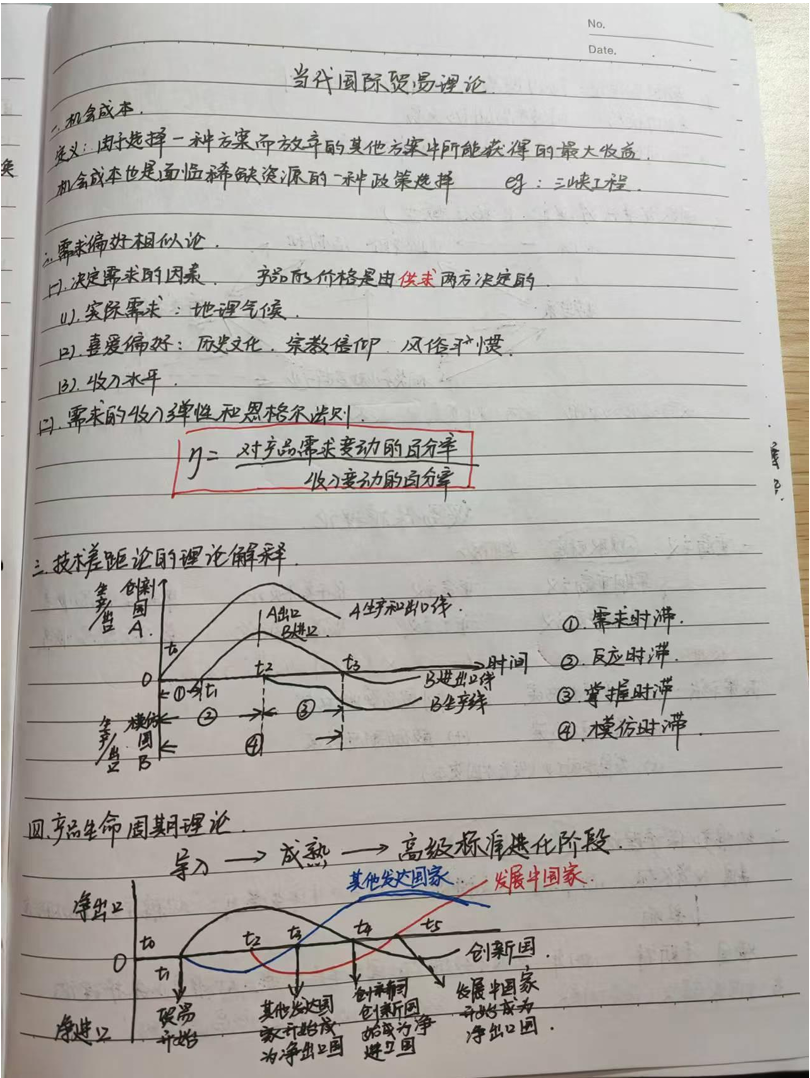 No.
Date.
当代国际贸易理论
一、机会成本.
定义：由于选择一种方案而放弃的其他方案中所能获得的最大收益.
机会成本也是面临稀缺资源的一种政策选择 eg：三峡工程.
二、需求偏好相似论.
(一).决定需求的因素. 产品的价格是由供求两方决定的.
(1).实际需求：地理气候.
(2).喜爱偏好：历史文化. 宗教信仰. 风俗习惯.
(3).收入水平.
(二).需求的收入弹性和恩格尔法则.
η= 对产品需求变动的百分率
收入变动的百分率
三.技术差距论的理论解释.
生产/出口 创新国A.
A出口
B进口
A生产和出口线.
t₀
0
t₁
t₂
t₃
时间
B进出口线
B生产线
①
②
③
④
生产/出口 模仿国B
①.需求时滞.
②.反应时滞.
③.掌握时滞
④.模仿时滞.
四.产品生命周期理论.
导入→成熟→高级标准进化阶段.
其他发达国家
发展中国家
净出口
t₀
t₁
t₂
t₃
t₄
t₅
0
创新国.
净进口
贸易开始
其他发达国家开始成为净出口国
创新国始成为净进口国
发展中国家开始成为净出口国.